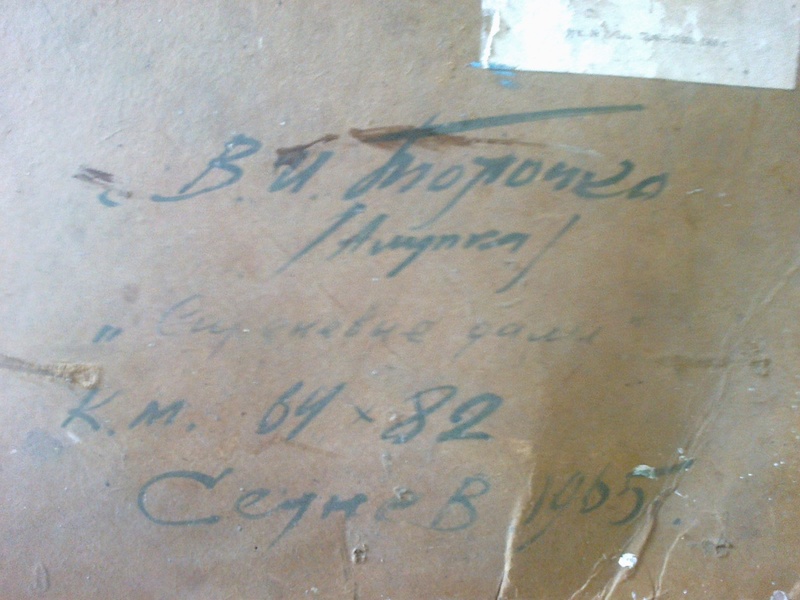 В. И. Толочко
/Алупка/
„Сиреневые дали"
К.м. 64 × 82
Седнев 1965г.